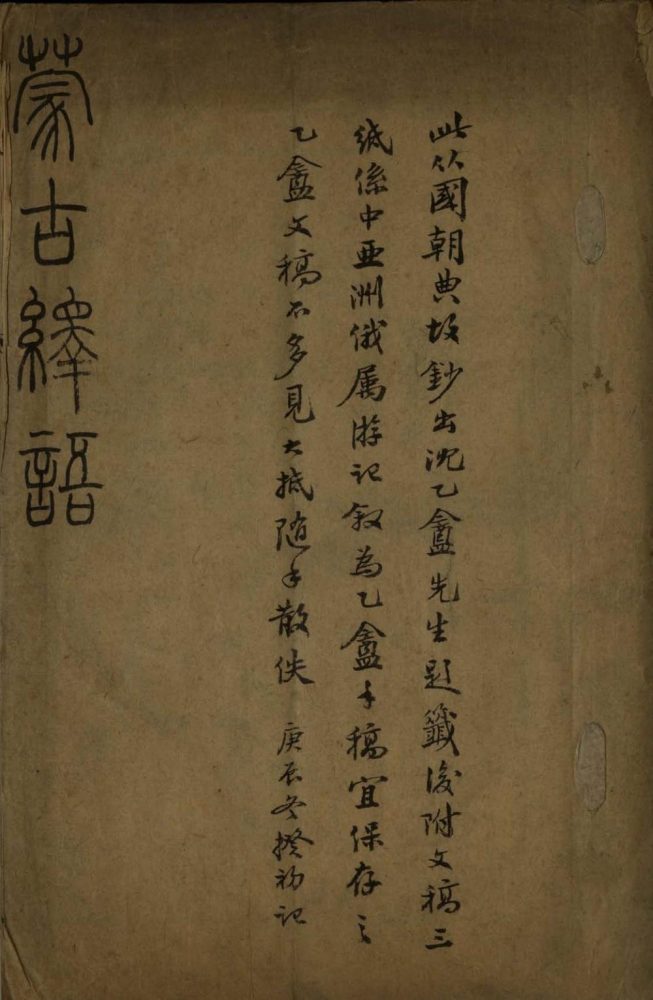 此從國朝典故鈔出沈乙盦先生題籤後附文稿三
紙係中亞洲俄属游記叙為乙盦手稿宜保存之
乙盦文稿不多見大抵随手散佚 庚辰冬揆初記
蒙古繹語